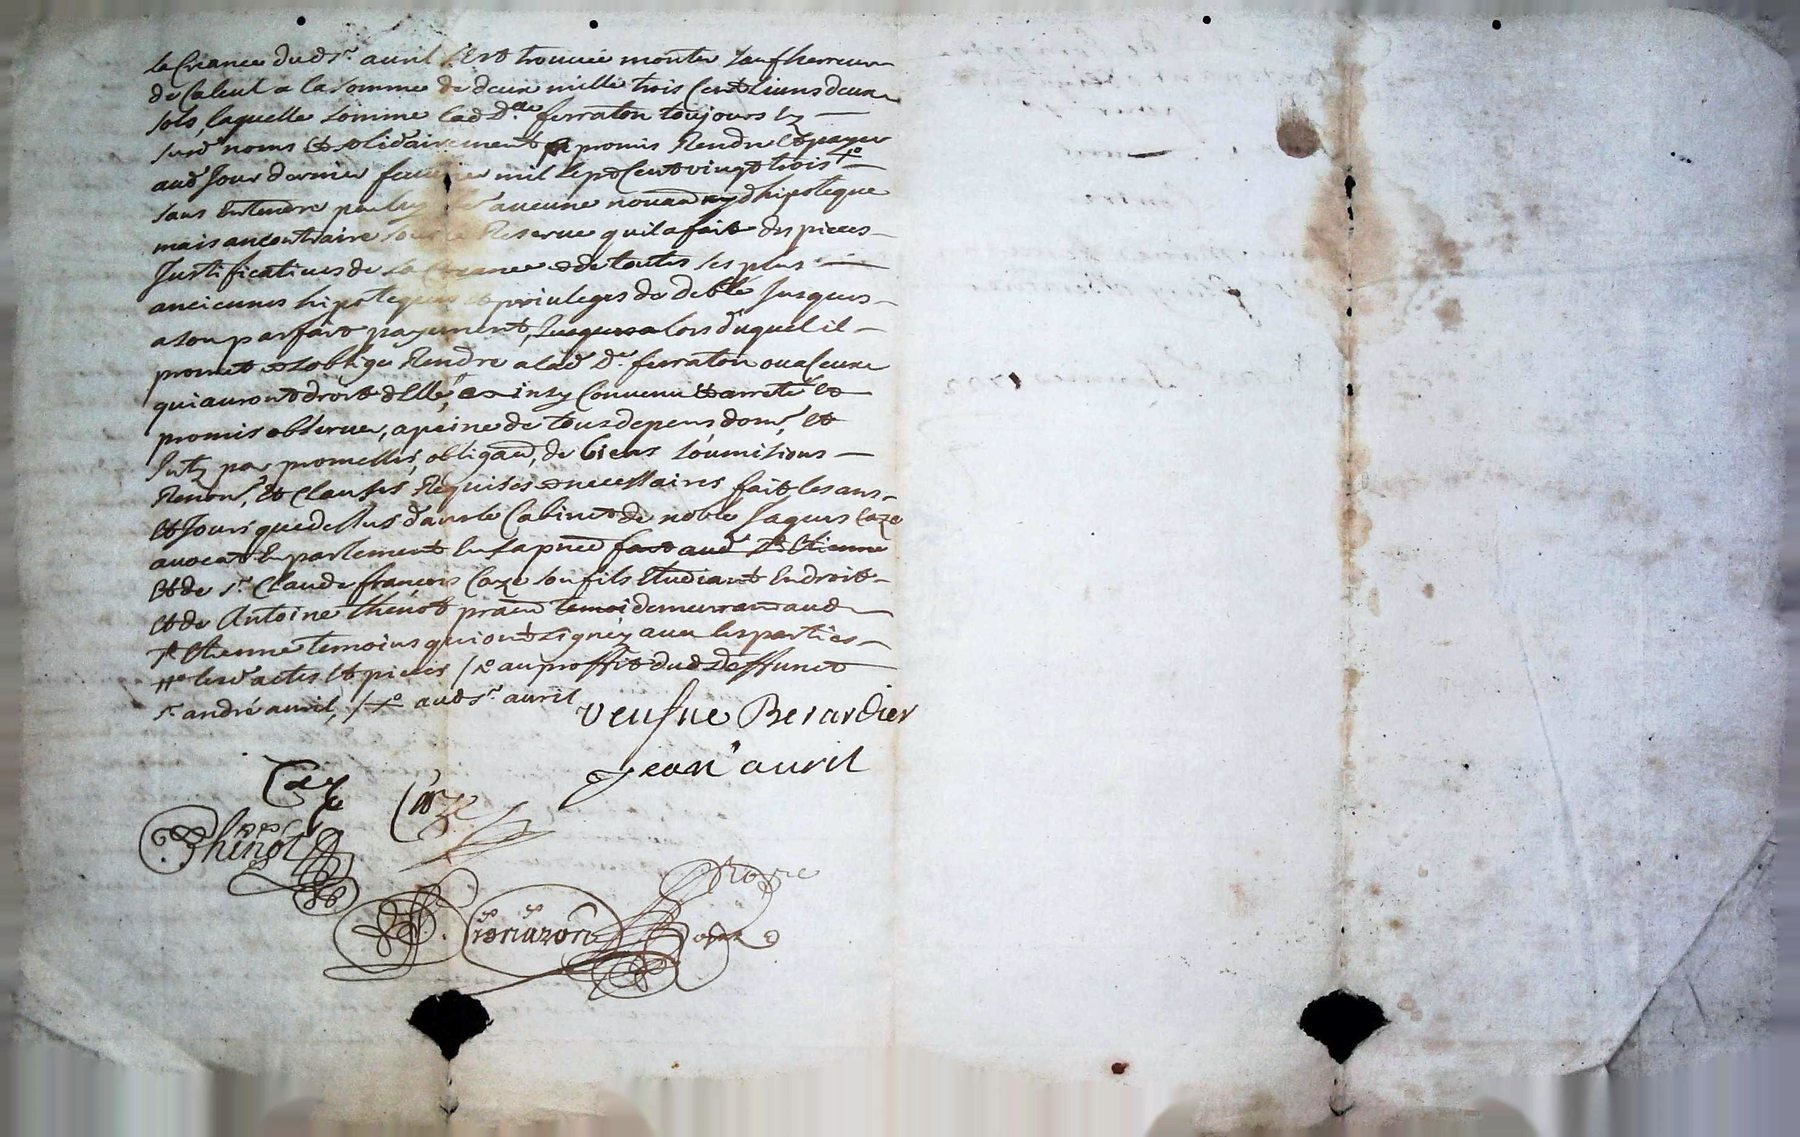 la Creance dud sr. auril s'est trouuée monter sauf herreur
de Calcul a la somme de deux mille trois Cent liures deux
sols, laquelle somme lad dlle ferraton toujours
susd noms et solidairement a promis Rendre et payer
aud Jour dernier feurier mil sept Cent vingt trois
sans Entendre aucune nouaôn d'hipoteque
mais au contraire sous la Reserue quil a fait des pieces
Justificatiues de sa Creance et de toutes ses plus
anciennes hipoteques et priuileges de debte Jusques
a son parfait payement, Jusques a lors duquel il
promet et soblige Rendre a lad De. ferraton ou a Ceux
qui auront droit d'Elle, ainsy Conuenu et arreté et
promis obseruer, a peine de tous depens dom, et
par promesses, obligaôn, de biens soumisions
Renon, et Clauses Requises et necessaires fait les ans
et Jours que dessus dans le Cabinet de noble Jaques Caze
auocat En parlement En sa pnce fait aud St Etienne
et de sr. Claude françois Caze son fils Etudiant En droit
et de Antoine thenot pratn temoi demeurant aud
St Etienne temoins qui ont signéz auec les parties
lesd actes et pieces / au proffit dud deffunct
sr. andré auril, / aud sr. auril
veufue Berardier
jean auril
Caze Caze
Thenot